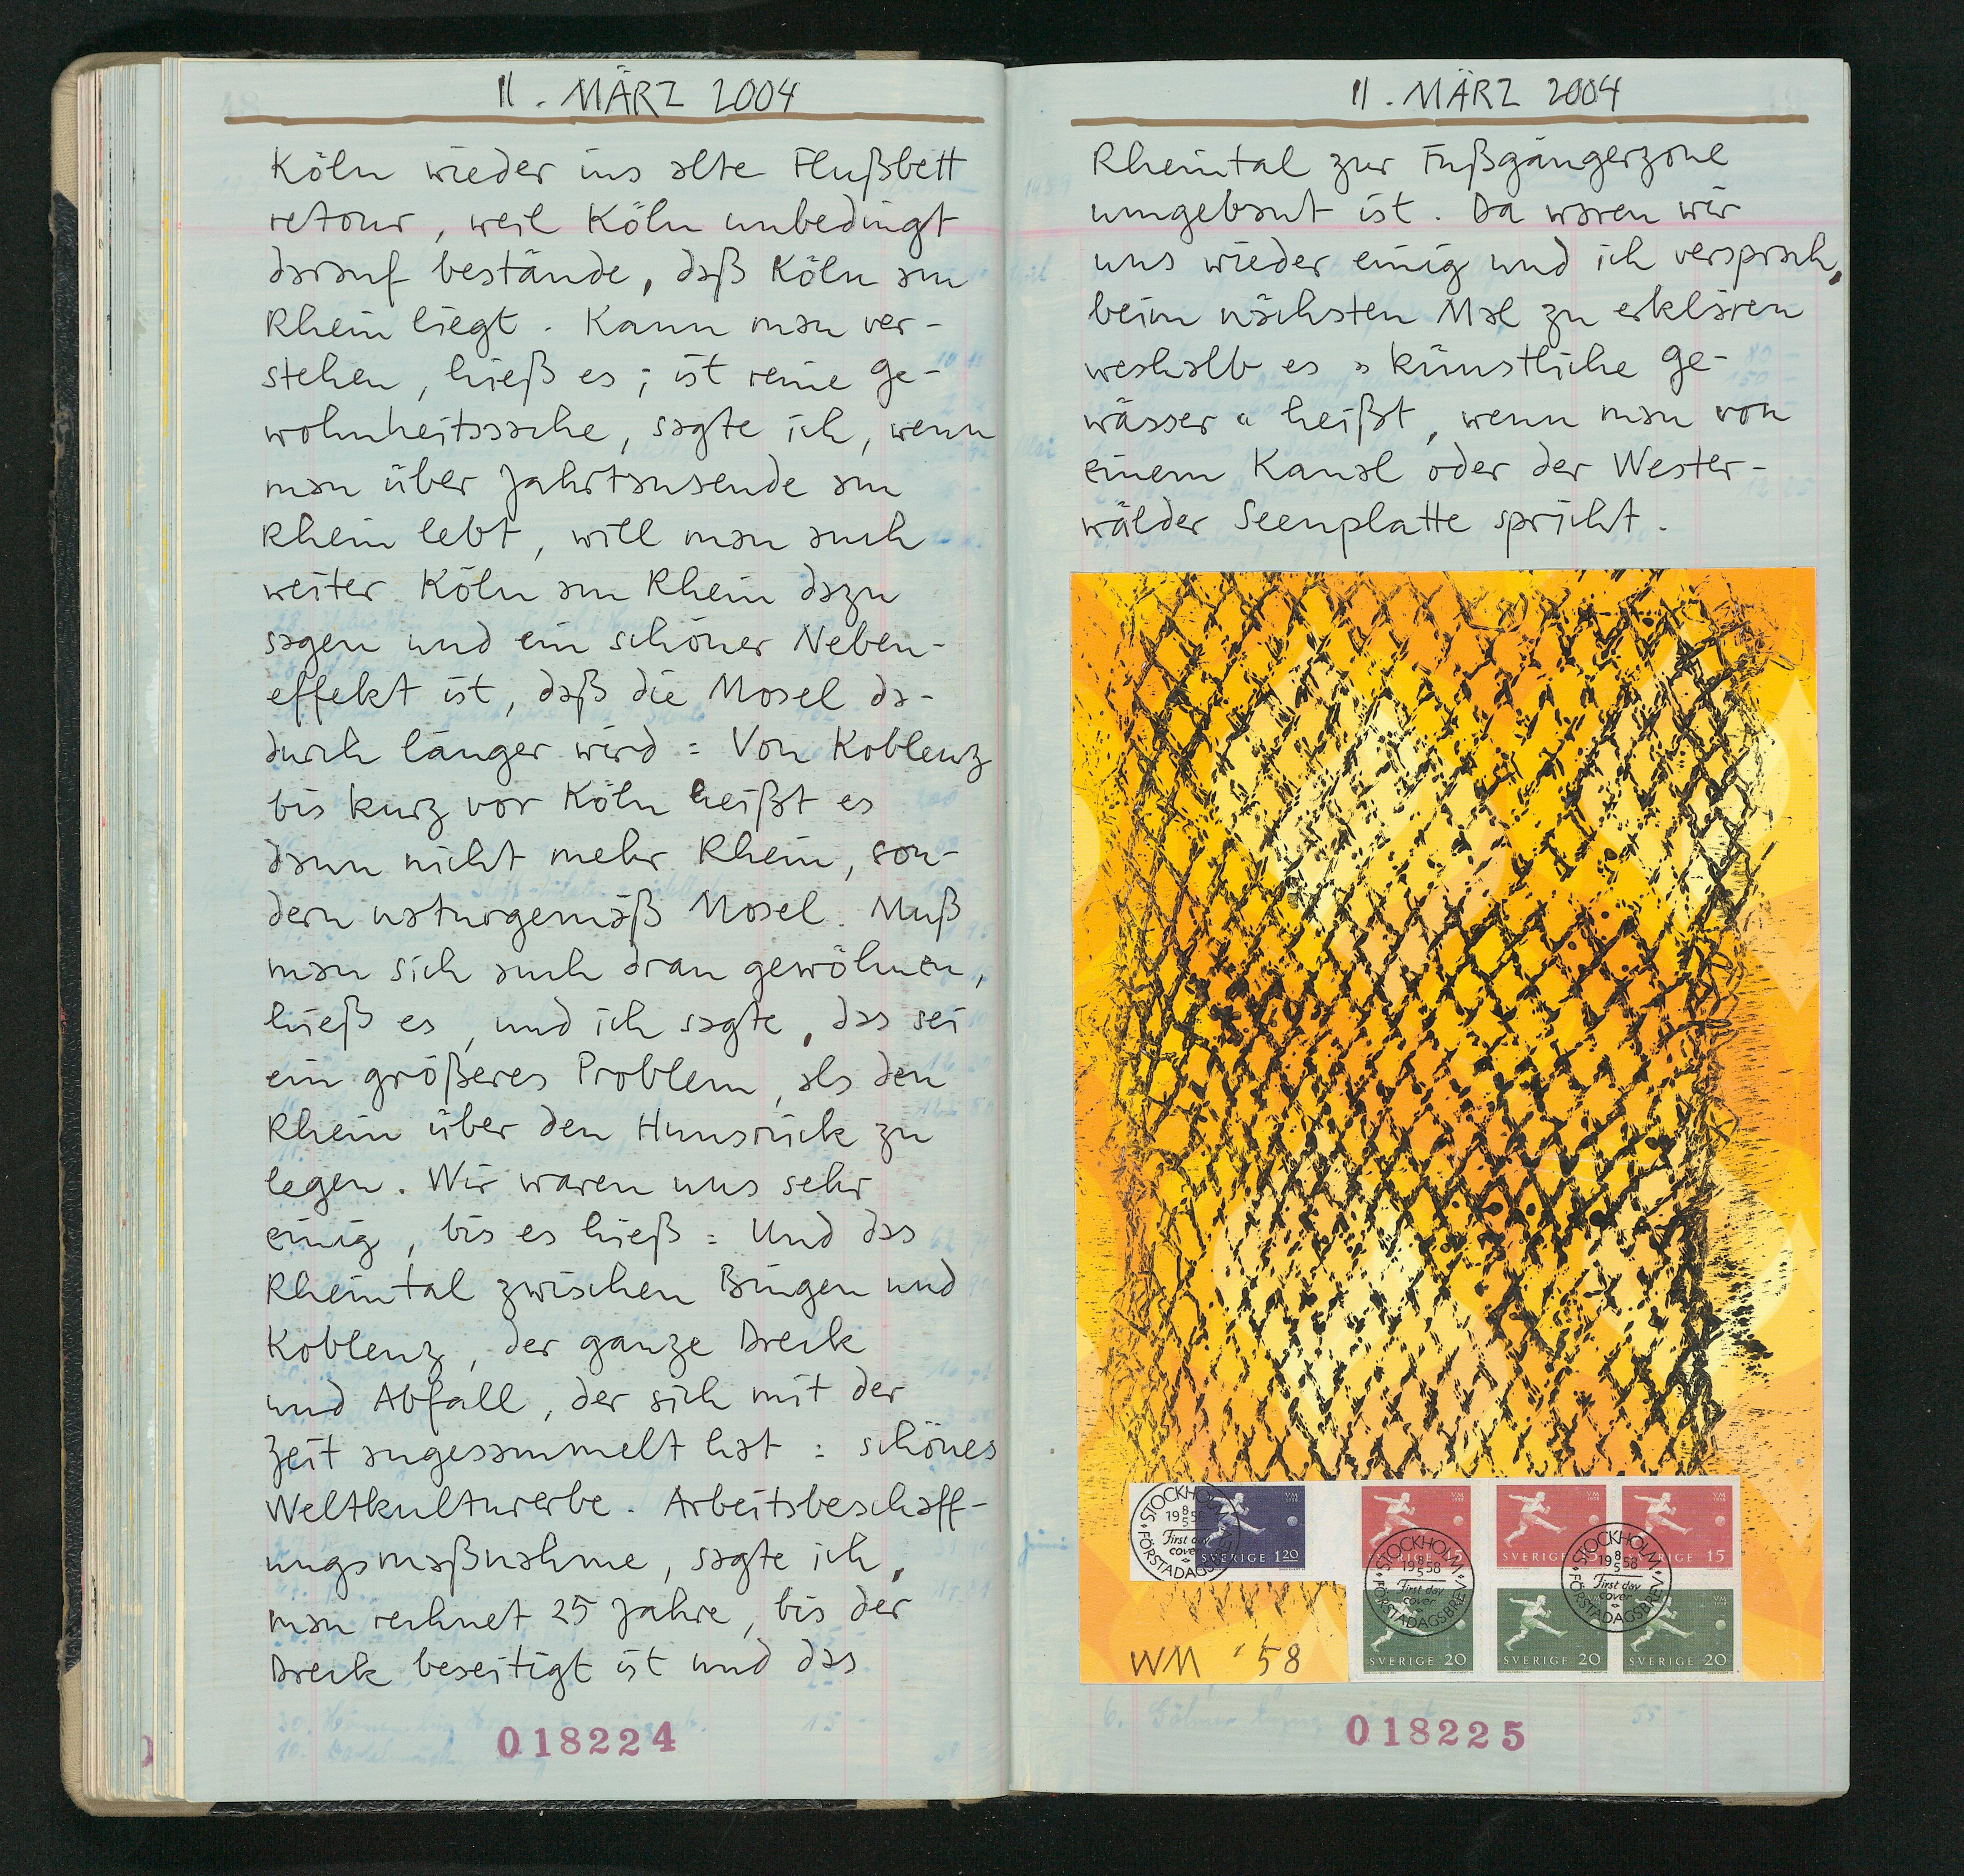 11. MÄRZ 2004
Köln wieder ins alte Flußbett
retour, weil Köln unbedingt
darauf bestände, daß Köln am
Rhein liegt. Kann man ver-
stehen, hieß es; ist reine Ge-
wohnheitssache, sagte ich, wenn
man über Jahrtausende am
Rhein lebt, will man auch
weiter Köln am Rhein dazu
sagen und ein schöner Neben-
effekt ist, daß die Mosel da-
durch länger wird: Von Koblenz
bis kurz vor Köln heißt es
dann nicht mehr Rhein, son-
dern naturgemäß Mosel. Muß
man sich auch dran gewöhnen,
hieß es, und ich sagte, das sei
ein größeres Problem, als den
Rhein über den Hunsrück zu
legen. Wir waren uns sehr
einig, bis es hieß: Und das
Rheintal zwischen Bingen und
Koblenz, der ganze Dreck
und Abfall, der sich mit der
Zeit angesammelt hat: schönes
Weltkulturerbe. Arbeitsbeschaff-
ungsmaßnahme, sagte ich,
man rechnet 25 Jahre, bis der
Dreck beseitigt ist und das
018224
11. MÄRZ 2004
Rheintal zur Fußgängerzone
umgebaut ist. Da waren wir
uns wieder einig und ich versprach,
beim nächsten Mal zu erklären
weshalb es »künstliche Ge-
wässer« heißt, wenn man von
einem Kanal oder der Wester-
wälder Seenplatte spricht.
STOCKHOLM
1958
8
5
First day
cover
FÖRSTADAGSBREV
VM
1958
SVERIGE 120
VM
1958
SVERIGE 15
VM
1958
SVERIGE 15
VM
1958
SVERIGE 15
STOCKHOLM
1958
8
5
First day
cover
FÖRSTADAGSBREV
STOCKHOLM
1958
8
5
First day
cover
FÖRSTADAGSBREV
SVERIGE 20
SVERIGE 20
VM
1958
SVERIGE 20
WM '58
018225